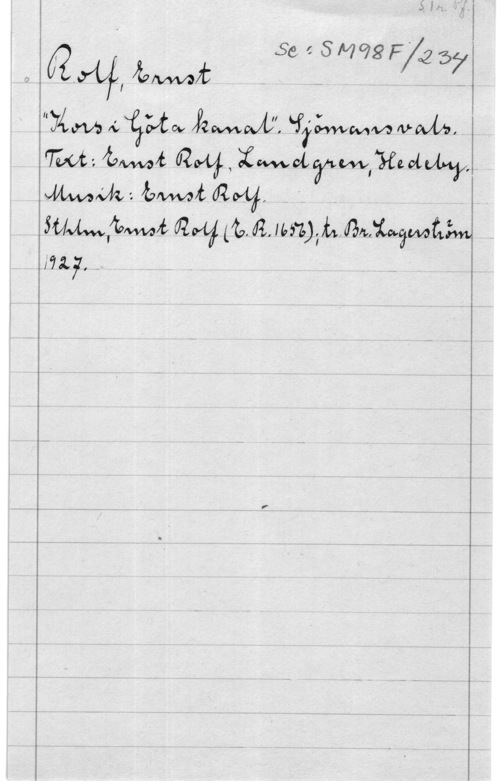 Se: SM98F/234
Rolf, Ernst
"Kors i Göta kanal". Sjömansvals.
Text: Ernst Rolf, Landgren, Hedeby.
Musik: Ernst Rolf.
Sthlm, Ernst Rolf (E.R. 1656); tr. Br. Lagerström
1927.